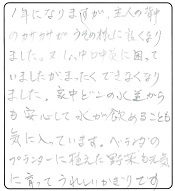 1年になりますが、主人の背中
のカサカサがうその様に良くなり
ました。
いましたがまったくできなくなり
ました。家中どこの水道から
も安心して水が飲めることも
気に入っています。ベランダの
プランターに植えた野菜も元気
に育ってうれしいかぎりです